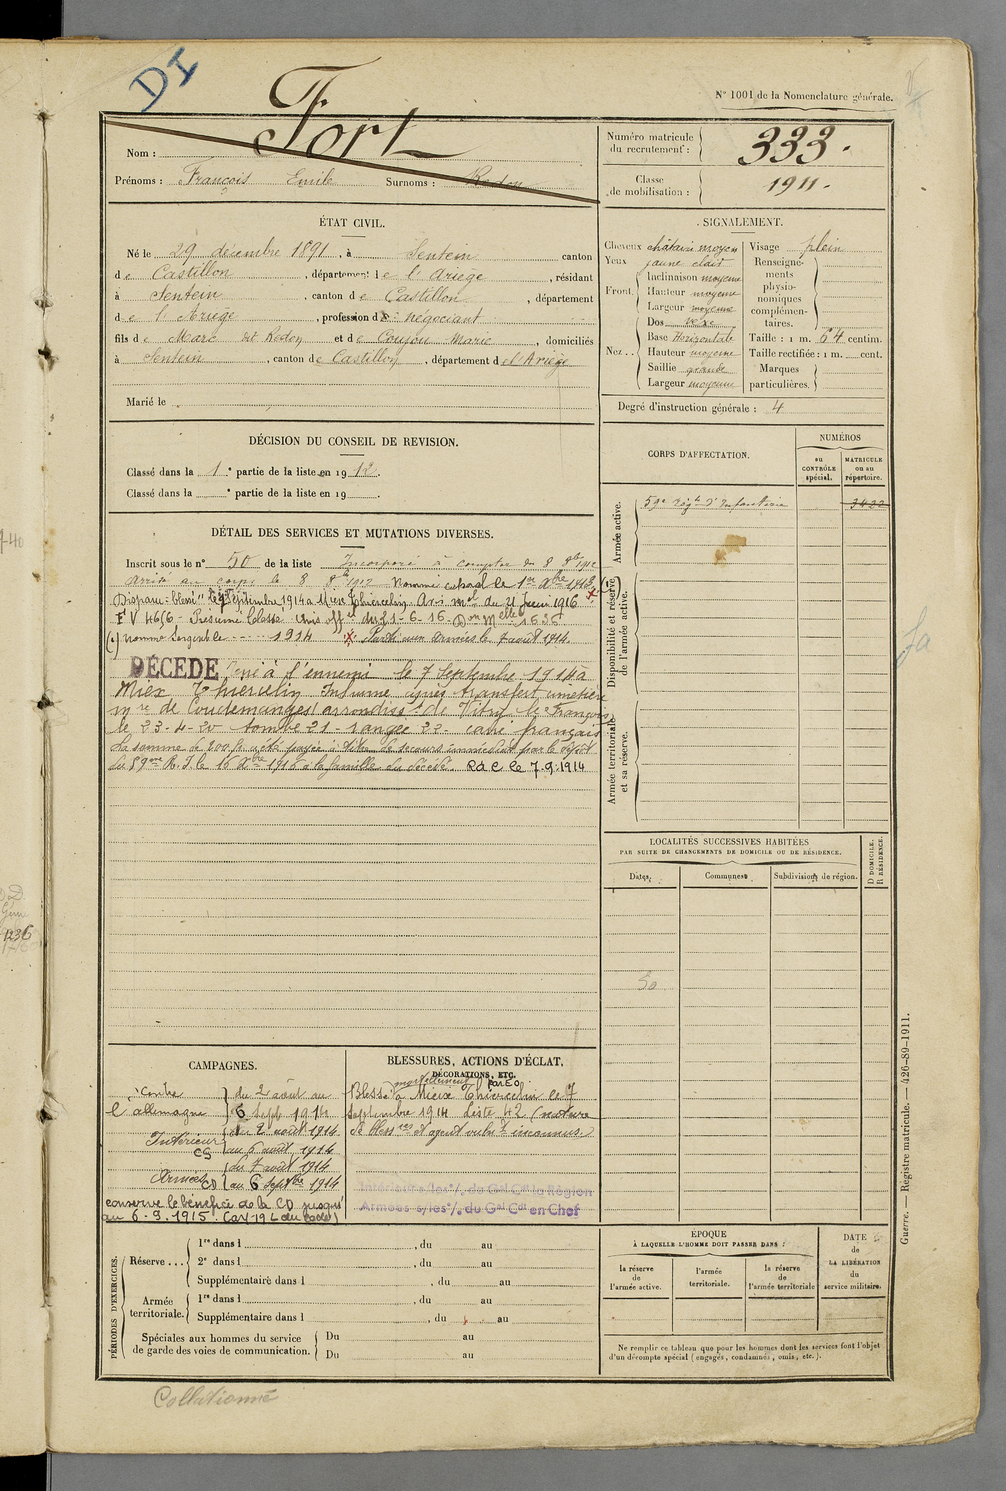 DI
N° 1001 de la Nomenclature générale.
Nom : Fort
Prénoms : François Emile Surnoms : Rodon
Numéro matricule du recrutement : 333.
Classe de mobilisation : 1911.
ÉTAT CIVIL.
Né le 29 décembre 1891, à Sentein canton
de Castillon, département de l'Ariège, résidant
à Sentein, canton de Castillon, département
de l'Ariège, profession de négociant
fils de Marc dit Rodon et de Coujou Marie, domiciliés
à Sentein, canton de Castillon, département de l'Ariège
Marié le
SIGNALEMENT.
Cheveux châtain moyen
Yeux jaune clair
Front Inclinaison moyenne
Hauteur moyenne
Largeur moyenne
Nez Dos vexe
Base Horizontale
Hauteur moyenne
Saillie grande
Largeur moyenne
Visage plein
Renseignements physionomiques complémentaires.
Taille : 1 m. 64 centim.
Taille rectifiée : 1 m. cent.
Marques particulières.
Degré d'instruction générale : 4
DÉCISION DU CONSEIL DE REVISION.
Classé dans la 1e partie de la liste en 1912.
Classé dans la e partie de la liste en 19
DÉTAIL DES SERVICES ET MUTATIONS DIVERSES.
Inscrit sous le n° 50 de la liste Incorporé à compter du 8 8bre 1912
Arrivé au corps le 8 8bre 1912 Nommé caporal le 1er Xbre 1913 (1)
Disparu "blessé" le 7 Septembre 1914 à Miex Thiercelin. Avis mel du 21 Juin 1916
F V 4656 - Présumé blessé Avis offel du 21-6-16. Don Melle 1636
(1) Nommé Sergent le - - - 1914 X Parti aux armées le 7 août 1914
DÉCÉDÉ Tué à l'ennemi le 7 Septembre 1914 à
Miex Thiercelin Inhumé après transfert cimetière
mre de Coudemanges arrondisst de Vitry le François
le 23-4-20 tombe 21 - rangée 22 - carré français
La somme de 200 fr a été payée à titre de secours immédiat par le dépôt
du 59ème R.I. le 16 Xbre 1916 à la famille du décédé RdC le 7.9.1914
CORPS D'AFFECTATION.
NUMÉROS
au CONTRÔLE spécial.
MATRICULE ou au répertoire.
Armée active.
59e Régt d'Infanterie 3422
Disponibilité et réserve de l'armée active.
Armée territoriale et sa réserve.
LOCALITÉS SUCCESSIVES HABITÉES
PAR SUITE DE CHANGEMENTS DE DOMICILE OU DE RÉSIDENCE.
Dates. Communes. Subdivisions de région. D DOMICILE. R RÉSIDENCE.
CAMPAGNES.
Contre l'allemagne du 2 août au
6 Sept 1914
Intérieur CS du 2 août 1914
au 6 août 1914
Armées CD du 7 août 1914
au 6 Septbre 1914
conserve le bénéfice de la CD jusqu'
au 6-9.1915.
BLESSURES, ACTIONS D'ÉCLAT,
DÉCORATIONS, ETC.
Blessé mortellement à Mieux Thiercelin le 7
Septembre 1914 liste 42 (nature
de blessres et agent vulnt inconnus)
Intérieur s/les °/. du Gal Ct la Région
Armées s/les °/. du Gal Cdt en Chef
PÉRIODES D'EXERCICES.
Réserve ... 1re dans l , du au
2e dans l , du au
Supplémentaire dans l , du au
Armée territoriale. 1re dans l , du au
Supplémentaire dans l , du au
Spéciales aux hommes du service de garde des voies de communication. Du au
Du au
ÉPOQUE
À LAQUELLE L'HOMME DOIT PASSER DANS :
la réserve de l'armée active.
l'armée territoriale.
la réserve de l'armée territoriale
DATE de LA LIBÉRATION du service militaire.
Ne remplir ce tableau que pour les hommes dont les services font l'objet
d'un décompte spécial (engagés, condamnés, omis, etc.).
Guerre. — Registre matricule. — 426-89-1911.
Collationné